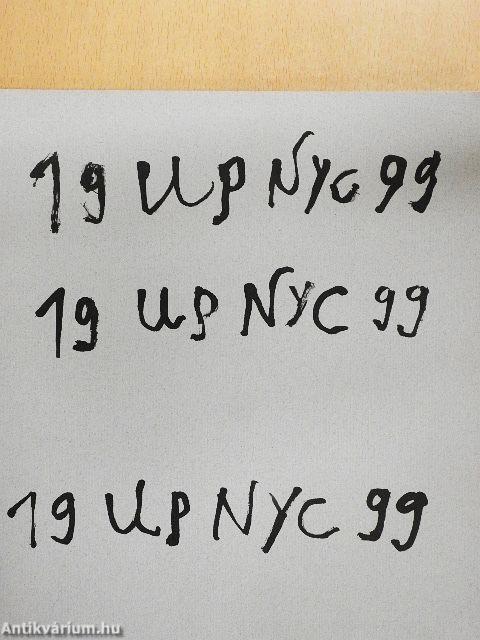 19 UP NYC 99
19 UP NYC 99
19 UP NYC 99
Antikvárium.hu